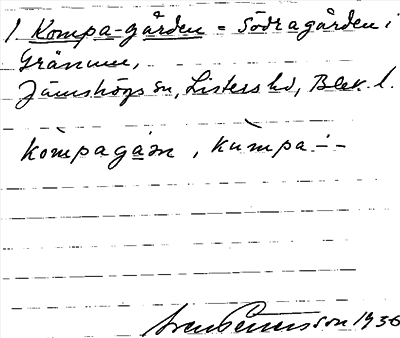 1. Kompa-gården = Södragården i
Gränum,
Jämshögs sn, Listers hd, Blek. l.
kòmpagàɔn, kùmpa -̀ -
Sven Benson 1936